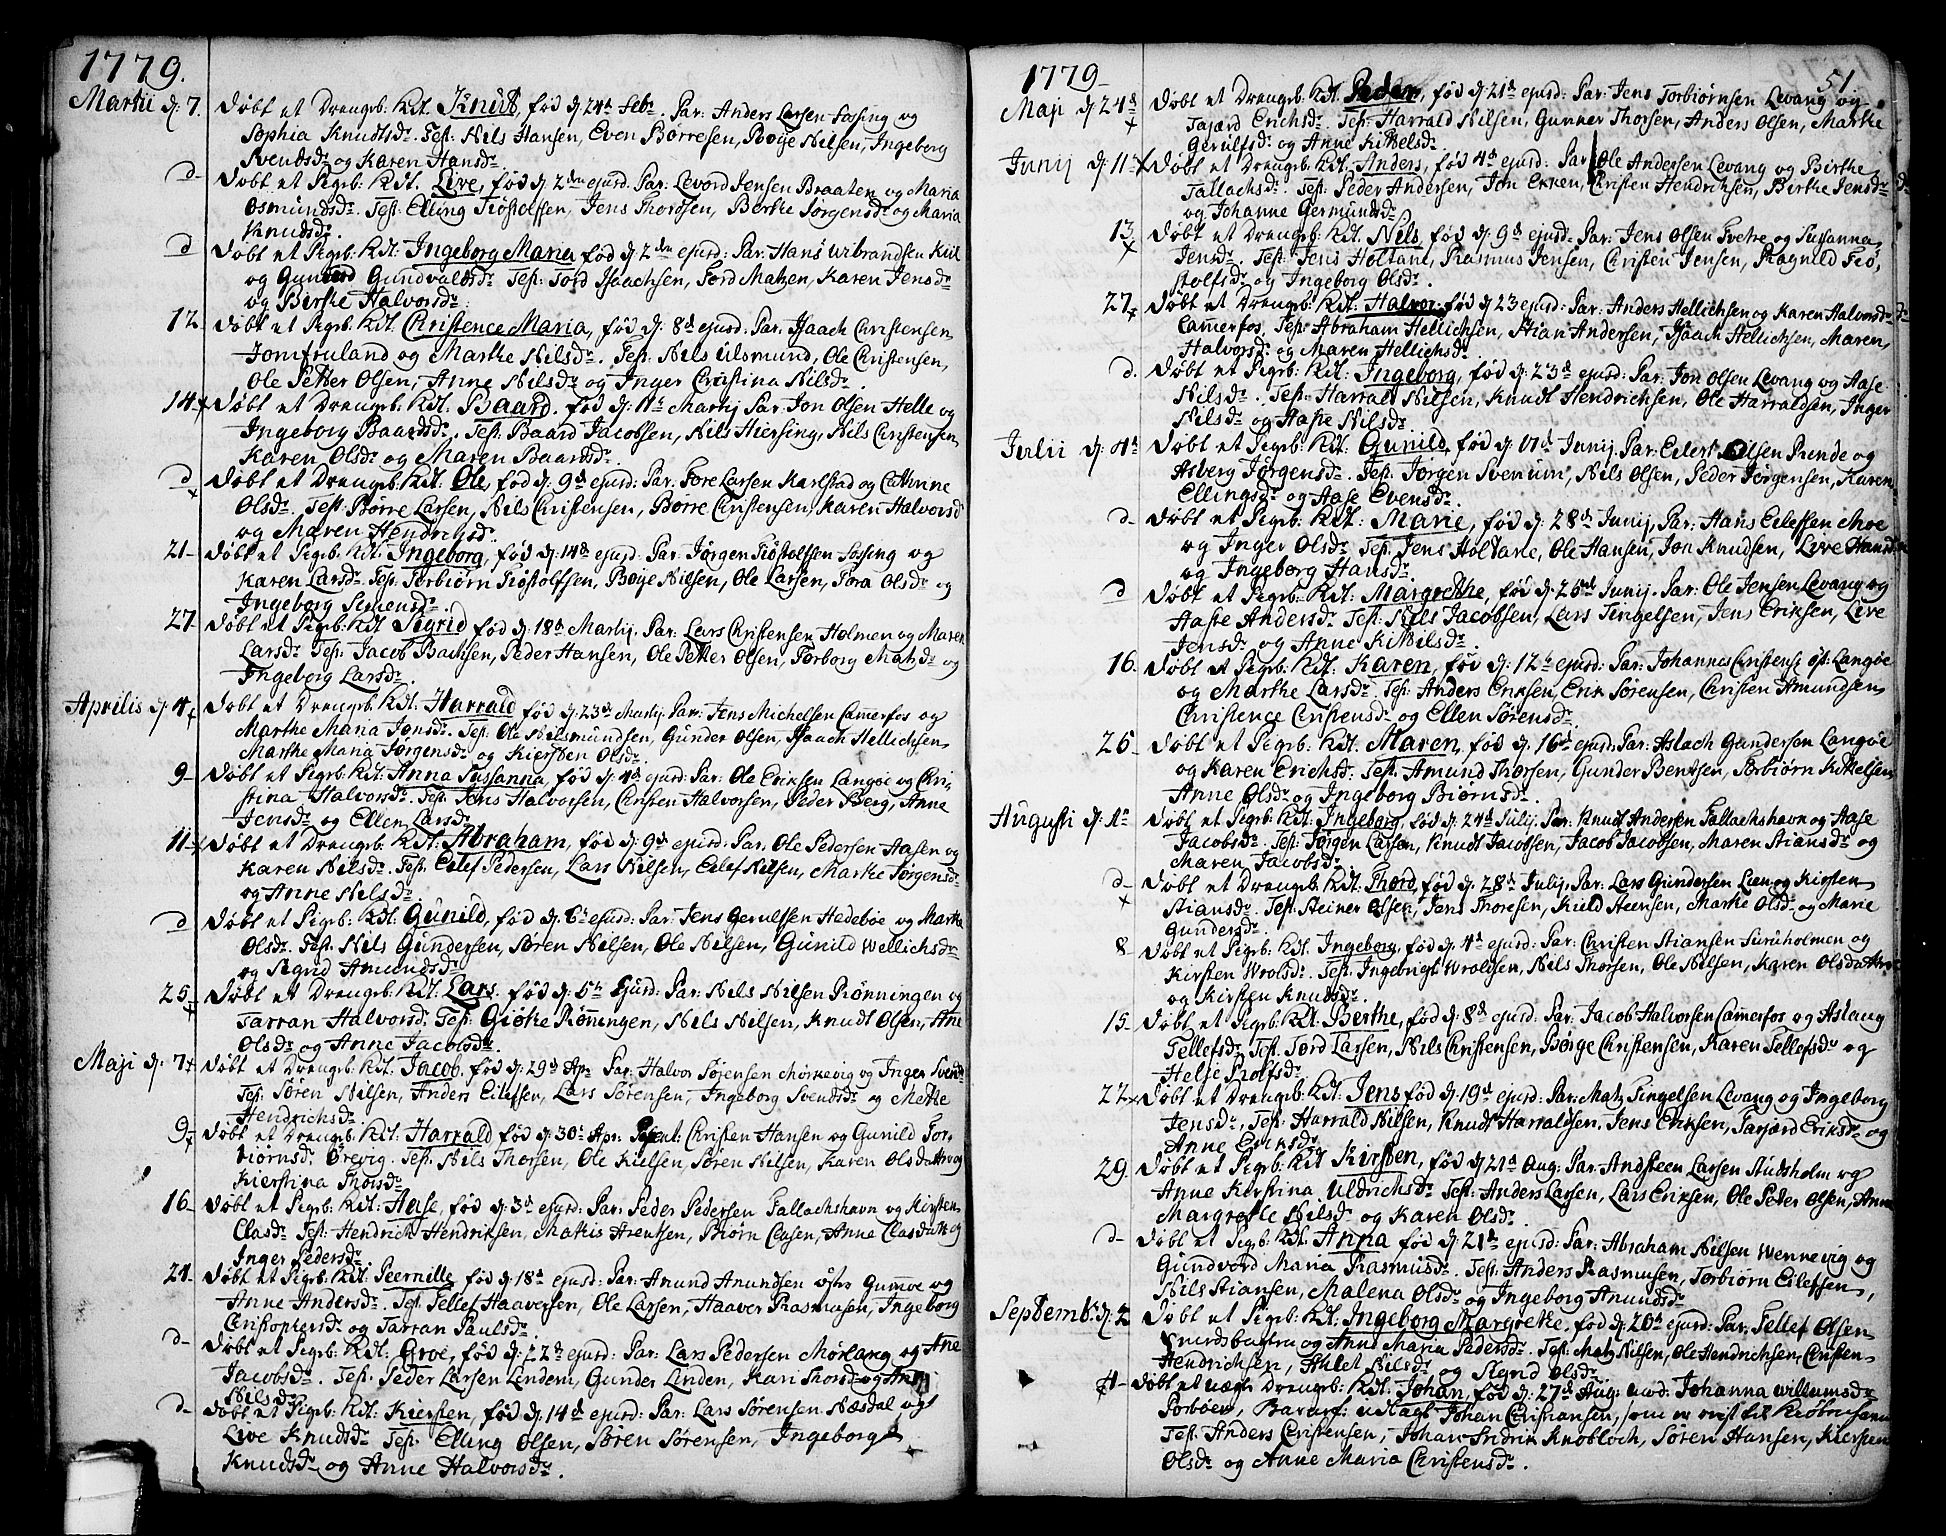 1779.
Martii d: 7. Døbt et Drengeb: Kdt. Knut, fød d: 24d Febr. Par: Anders Larsen Fossing og
Sophia Knudtsdr. Test: Nils Hansen, Even Børresen, Boÿe Nilsen, Ingeborg
Svendsdr og Karen Hansdr.
d- Døbt et Pigeb: Kdt. Live, fød d: 2den ejusd. Par: Levord Jensen Braaten og Maria
Osmundsdr. Test: Elling Tiøstolfsen, Jens Thorsøsen, Berthe Jørgensdr og Maria
Knudsdr.
d Døbt et Pigeb: Kdt. Ingeborg Maria fød d: 2den ejusd: Par: Hans Wibrandsen Kiil
og Gunvord Gundvaldsdr. Test: Tord Isaachsen, Tord Matzen, Karen Jensdr
og Birthe Halvorsdr.
12 Døbt et Pigeb: Kdt. Christence Maria, fød d: 8d ejusd: Par: Isaach Christensen
Jomfruland og Marthe Nilsdr. Test: Nils Ulsmund, Ole Christensen,
Ole Petter Olsen, Anne Nilsdr og Inger Christina Nilsdr.
14 Døbt et Drengeb: Kdt. Baard. fød d: 11t Martij Par: Jon Olsen Helle og
Ingeborg Baardsdr. Test: Baard Jacobsen, Nils Hiersing, Nils Christensen,
Karen Olsdr og Maren Baardsdr.
d Døbt et Drengeb: Kdt. Ole, fød d: 9d ejusd: Par: Tore Larsen Karlstad og Cathrine
Olsdr. Test: Børre Larsen, Nils Christensen, Børre Christensen, Karen Halvorsd
og Maren Hendrichsdr.
21- Døbt et Pigeb: Kdt. Ingeborg, fød d: 14d ejusd: Par: Jørgen Tiøstolfsen Fossing og
Karen Larsdr. Test: Torbiørn Tiøstolfsen, Boÿe Nilsen, Ole Larsen, Tora Olsdr og
Ingeborg Simensdr.
27 Døbt et Pigeb: Kdt Sigrid fød d: 18d Martij. Par: Lars Christensen Holmen og Maren
Larsdr. Test: Jacob Bachsen, Peder Hansen, Ole Petter Olsen, Torborg Matzdr og
Ingeborg Larsdr.
Aprilis d: 4 Døbt et Drengeb: Kdt. Harrald fød d: 23d Martij. Par: Jens Michelsen Camerfos og
Marthe Maria Jonsdr. Test: Ole Nilsmundsen, Gunder Olsen, Isaach Hellichsen
Marthe Maria Jørgensdr og Kiersten Olsdr.
9- Døbt et Pigeb: Kdt: Anna Sussanna, fød d: 4d ejusd: Par: Ole Eriksen Langøe og Chri-
stina Halvorsdr. Test: Jens Halvorsen, Christen Halvorsen, Peder Berg, Anne
Jensdr og Ellen Larsdr.
11 Døbt et Drengeb: Kdt: Abraham, fød d: 9d ejusd: Par: Ole Pedersen Haasen og
Karen Nilsdr. Test: Eilef Pedersen, Lars Nilsen, Eilef Nilsen, Marthe Jørgensdr
og Anne Nilsdr.
d Døbt et Pigeb: Kdt. Gunild, fød d: 6t ejusd: Par: Jens Gerulfsen Hedebøe og Marthe
Olsdr. Test: Nils Gundersen, Søren Nilsen, Ole Nilsen, Gunild Wellichsdr
og Sigrid Amundsdr
25 Døbt et Drengeb: Kdt: Lars. fød d: 5th Ejusd: Par: Nils Nilsen Rønningen og
Tarran Halvorsdr. Test: Giøthe Rønningen, Nils Nilsen, Knudt Olsen, Ane
Olsdr og Anne Jacobsdr.
Maji d: 7 Døbt et Drengeb: Kdt. Jacob. fød d: 29d Apr Par: Halvor Sørensen Mørkevig og Inger Svensdr
Test: Søren Nilsen, Anders Eilefsen, Lars Sørensen, Ingeborg Svendsdr og Mette
Hendrichsdr.
9 Døbt et Drengeb: Kdt: Harrald fød d: 30t Apr: Parent: Christen Hansen og Gunild Tor-
biørnsdr. Ørevig. Test: Nils Thorsen, Ole Kielsen, Søren Nilsen, Karen Olsdr og
Kierstina Thorsdr.
16 Døbt et Pigeb: Kdt: Aase, fød d: 3d ejusd: Par: Peder Pedersen Tallachshavn og Kirsten
Clasdr. Test: Hendrich Hendriksen, Mathis Arentsen, Biørn Clasen, Anne Clasdr og
Inger Pedersdr.
24 Døbt et Pigeb: Kdt: Peernille, fød d: 18d ejusd: Par: Anund Anundsen østre Gumøe og
Anne Andersdr. Test: Tellef Haaversen, Ole Larsen, Haaver Rasmusen, Ingeborg
Christophersdr og Tarran Paulsdr.
d- Døbt et Pigeb: Kdt. Groe, fød d: 22d ejusd: Par: Lars Pedersen Mørlang og Ane
Jacobsdr. Test: Peder Larsen Lindem, Gunder Linden, Kari Thorsdr og Anne
Nilsdr.
d- Døbt et Pigeb: Kdt: Kiersten, fød d: 14d ejusd: Par: Lars Sørensen Næsdal og
Live Knudsdr Test: Elling Olsen, Søren Sørensen, Ingeborg
Knudsdr og Anne Halvorsdr.
1779 51
Maji d: 24d Døbt et Drengeb: Kdt. Peder, fød d: 21d ejusd: Par: Jens Torbiørnsen Levang og
Tajærd Erichsdr. Test: Harrald Nilsen, Gunner Thorsen, Anders Olsen, Marthe
Gerulfsdr og Anne Kittelsdr.
Junij d: 11 Døbt et Drengeb: Kdt. Anders, fød 4d ejusd: Par Ole Andersen Levang og Birthe
Tallachsdr. Test: Peder Andersen, Jon Erken, Christen Hendrichsen, Birthe Jensdr
og Johanne Germundsdr.
13 Døbt et Drengeb: Kdt. Nils fød d: 9d ejusd: Par: Jens Olsen Tvetre og Sussanna
Jensdr. Test: Jens Holtane, Rasmus Jensen, Christen Jensen, Ragnild Tiø,
stolfsdr og Ingeborg Olsdr.
27 Døbt et Drengeb: Kdt: Halvor, fød d: 23 ejusd: Par: Anders Hellichsen og Karen Halvorsdr
Camerfos. Test: Abraham Hellichsen, Stian Andersen, Isaach Hellichsen, Maren
Halvorsdr og Maren Hellichsdr.
d. Døbt et Pigeb: Kdt: Ingeborg, fød d: 23d ejusd: Par: Jon Olsen Levang og Aase
Nilsdr. Test: Harrald Nilsen, Knudt Hendrichsen, Ole Harraldsen, Inger
Nilsdr og Aase Nilsdr.
Julii d: 4d Døbt et Pigeb: Kdt: Gunild, fød d: 17d Junij. Par: Eilert Olsen Rinde og
Asberg Jørgensdr. Test: Jørgen Svenum, Nils Olsen, Peder Jørgensen, Karen
Ellingsdr og Aase Evensdr.
d- Døbt et Pigeb: Kdt: Marie, fød d: 28d Junij, Par: Hans Eilefsen Moe
og Inger Olsdr. Test: Jens Holtane, Ole Hansen, Jon Knudsen, Live Hansdr
og Ingeborg Hansdr.
d Døbt et Pigeb: Kdt: Margrethe, fød d: 26d Junij. Par: Ole Jensen Levang og
Aase Andersdr. Test: Nils Jacobsen, Lars Tingelsen, Jens Eriksen, Live
Jensdr og Anne Kittilsdr.
16 Døbt et Pigeb: Kdt: Karen, fød d: 12t ejusd: Par: Johannes Christens: øst: Langøe
og Marthe Larsdr. Test: Anders Eriksen, Erik Sørensen, Christen Amundsen
Christence Christensdr og Ellen Sørensdr.
26- Døbt et Pigeb: Kdt. Maren, fød d: 16d ejusd: Par: Aslach Gundersen Langøe
og Karen Erichsdr. Test: Amund Thorsen, Gunder Bentsen, Torbiørn Kittelsen
Anne Olsdr og Ingeborg Biørnsdr.
Augusti d: 1n Døbt et Pigeb: Kdt: Ingeborg, fød d: 24d Julij. Par: Knudt Andersen Tallachshavn og Aase
Jacobsdr. Test: Jørgen Larsen, Knudt Jacobsen, Jacob Jacobsen, Maren Stiansdr og
Maren Jacobsdr.
d- Døbt et Drengeb: Kdt. Thord, fød d: 28d Julij. Par: Lars Gundersen Lien og Kirsten
Stiansdr. Test: Steiner Olsen, Jens Thoresen, Kield Steensen, Marthe Olsdr og Marie
Gundersdr.
8 Døbt et Pigeb: Kdt. Ingeborg, fød d: 4d ejusd: Par: Christen Stiansen Furuholmen og
Kirsten Wrolsdr. Test: Ingebrigt Wrolsen, Nils Thorsen, Ole Nilsen, Karen Olsdr
og Kirsten Knudsdr.
15- Døbt et Pigeb: Kdt: Berthe, fød d: 8d ejusd: Par: Jacob Halvorsen Camerfos og Aslaug
Tellefsdr. Test: Tord Larsen, Nils Christensen, Børge Christensen, Karen Tellefsdr og
Helje Rolfsdr.
22 Døbt et Drengeb: Kdt. Jens fød d: 19d ejusd: Par: Matz Tingelsen Levang og Ingeborg
Jensdr, Test: Harrald Nilsen, Knudt Harraldsen, Jens Eriksen, Tarjærd Eriksdr og
Anne Eriksdr.
29. Døbt et Pigeb: Kdt Kirsten, fød d: 21d Aug: Par: Andsteen Larsen Studsholm og
Anne Kierstina Uldrichsdr. Test: Anders Larsen, Lars Eriksen, Ole Peder Olsen, Anne
Margrethe Nilsdr og Karen Olsdr.
d- Døbt et Pigeb: Kdt: Anna fød d: 21d ejusd: Par: Abraham Nilsen Wennevig og
Gundvord Maria Rasmusdr. Test: Anders Rasmusen, Torbiørn Eilefsen,
Nils Stiansen, Malena Olsdr og Ingeborg Anundsdr.
Septembr d: 2 Døbt et Pigeb: Kdt. Ingeborg Margrethe, fød d: 20d ejusd: Par: Tellef Olsen
og Anne Maria Pedersdr. Test: Matz Nilsen, Ole Hendrichsen, Christen
Hendrichsen, Nilsdr og Sigrid Olsdr.
4- Døbt et uægte Drengeb: Kdt: Johan, fød d: 27d Aug: mod: Johanna Willumsdr
Torbøen, Barnef: udlagt Johan Christiansen, som er reist til Kiøbenhavn
Test: Anders Christensen, Johan Fridrik Knobloch, Søren Hansen, Kiersten
Olsdr og Anne Maria Christensdr.